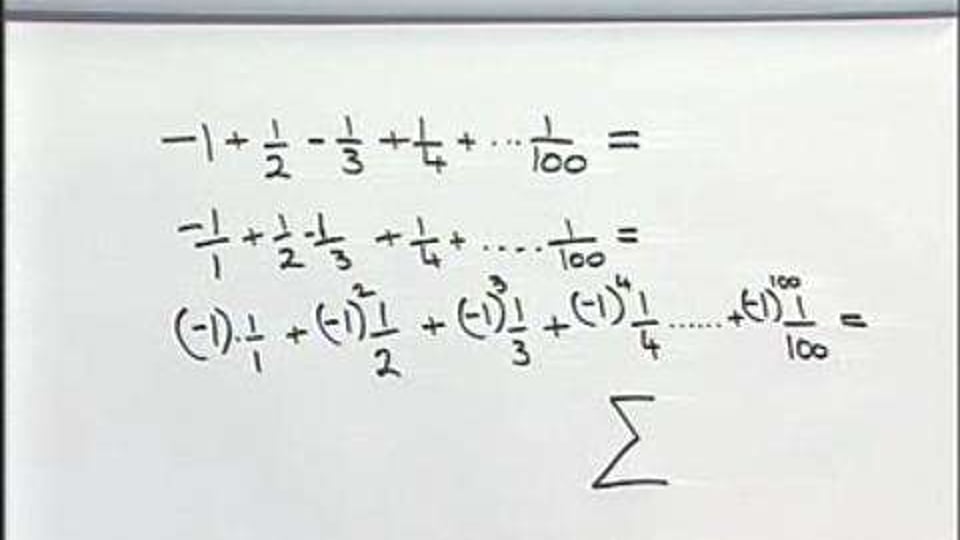 -1 + 1/2 - 1/3 + 1/4 + ... 1/100 =
-1/1 + 1/2 - 1/3 + 1/4 + .... 1/100 =
(-1)·1/1 + (-1)² 1/2 + (-1)³ 1/3 + (-1)⁴ 1/4 ...... + (-1)¹⁰⁰ 1/100 =
Σ